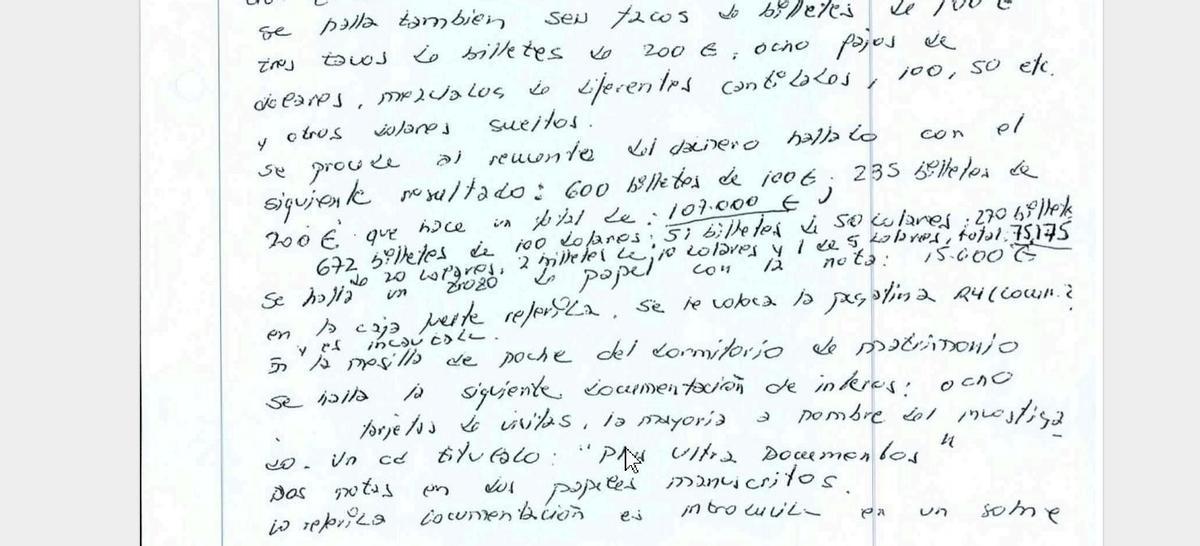 se halla tambien seis tacos de billetes de 100 €
tres tacos de billetes de 200 €, ocho fajos de
dolares, mezclados de diferentes cantidades, 100, 50 etc.
y otros dolares sueltos.
se procede al recuento del dinero hallado con el
siguiente resultado: 600 billetes de 100 €; 235 billetes de
200 € que hace un total de: 107.000 €
672 billetes de 100 dolares; 51 billetes de 50 dolares; 270 billetes
de 20 dolares, 2 billetes de 10 dolares y 1 de 5 dolares, total: 75,175
se halla un trozo de papel con la nota: 15.000 €
en la caja fuerte referida. se le coloca la pegatina R4
y es incautado.
En la mesilla de noche del dormitorio de matrimonio
se halla la siguiente documentación de interes: ocho
tarjetas de visitas, la mayoria a nombre del investiga
do. Un cd titulado: "Plus Ultra Documentos"
Dos notas en dos papeles manuscritos.
la referida documentación es introducida en un sobre